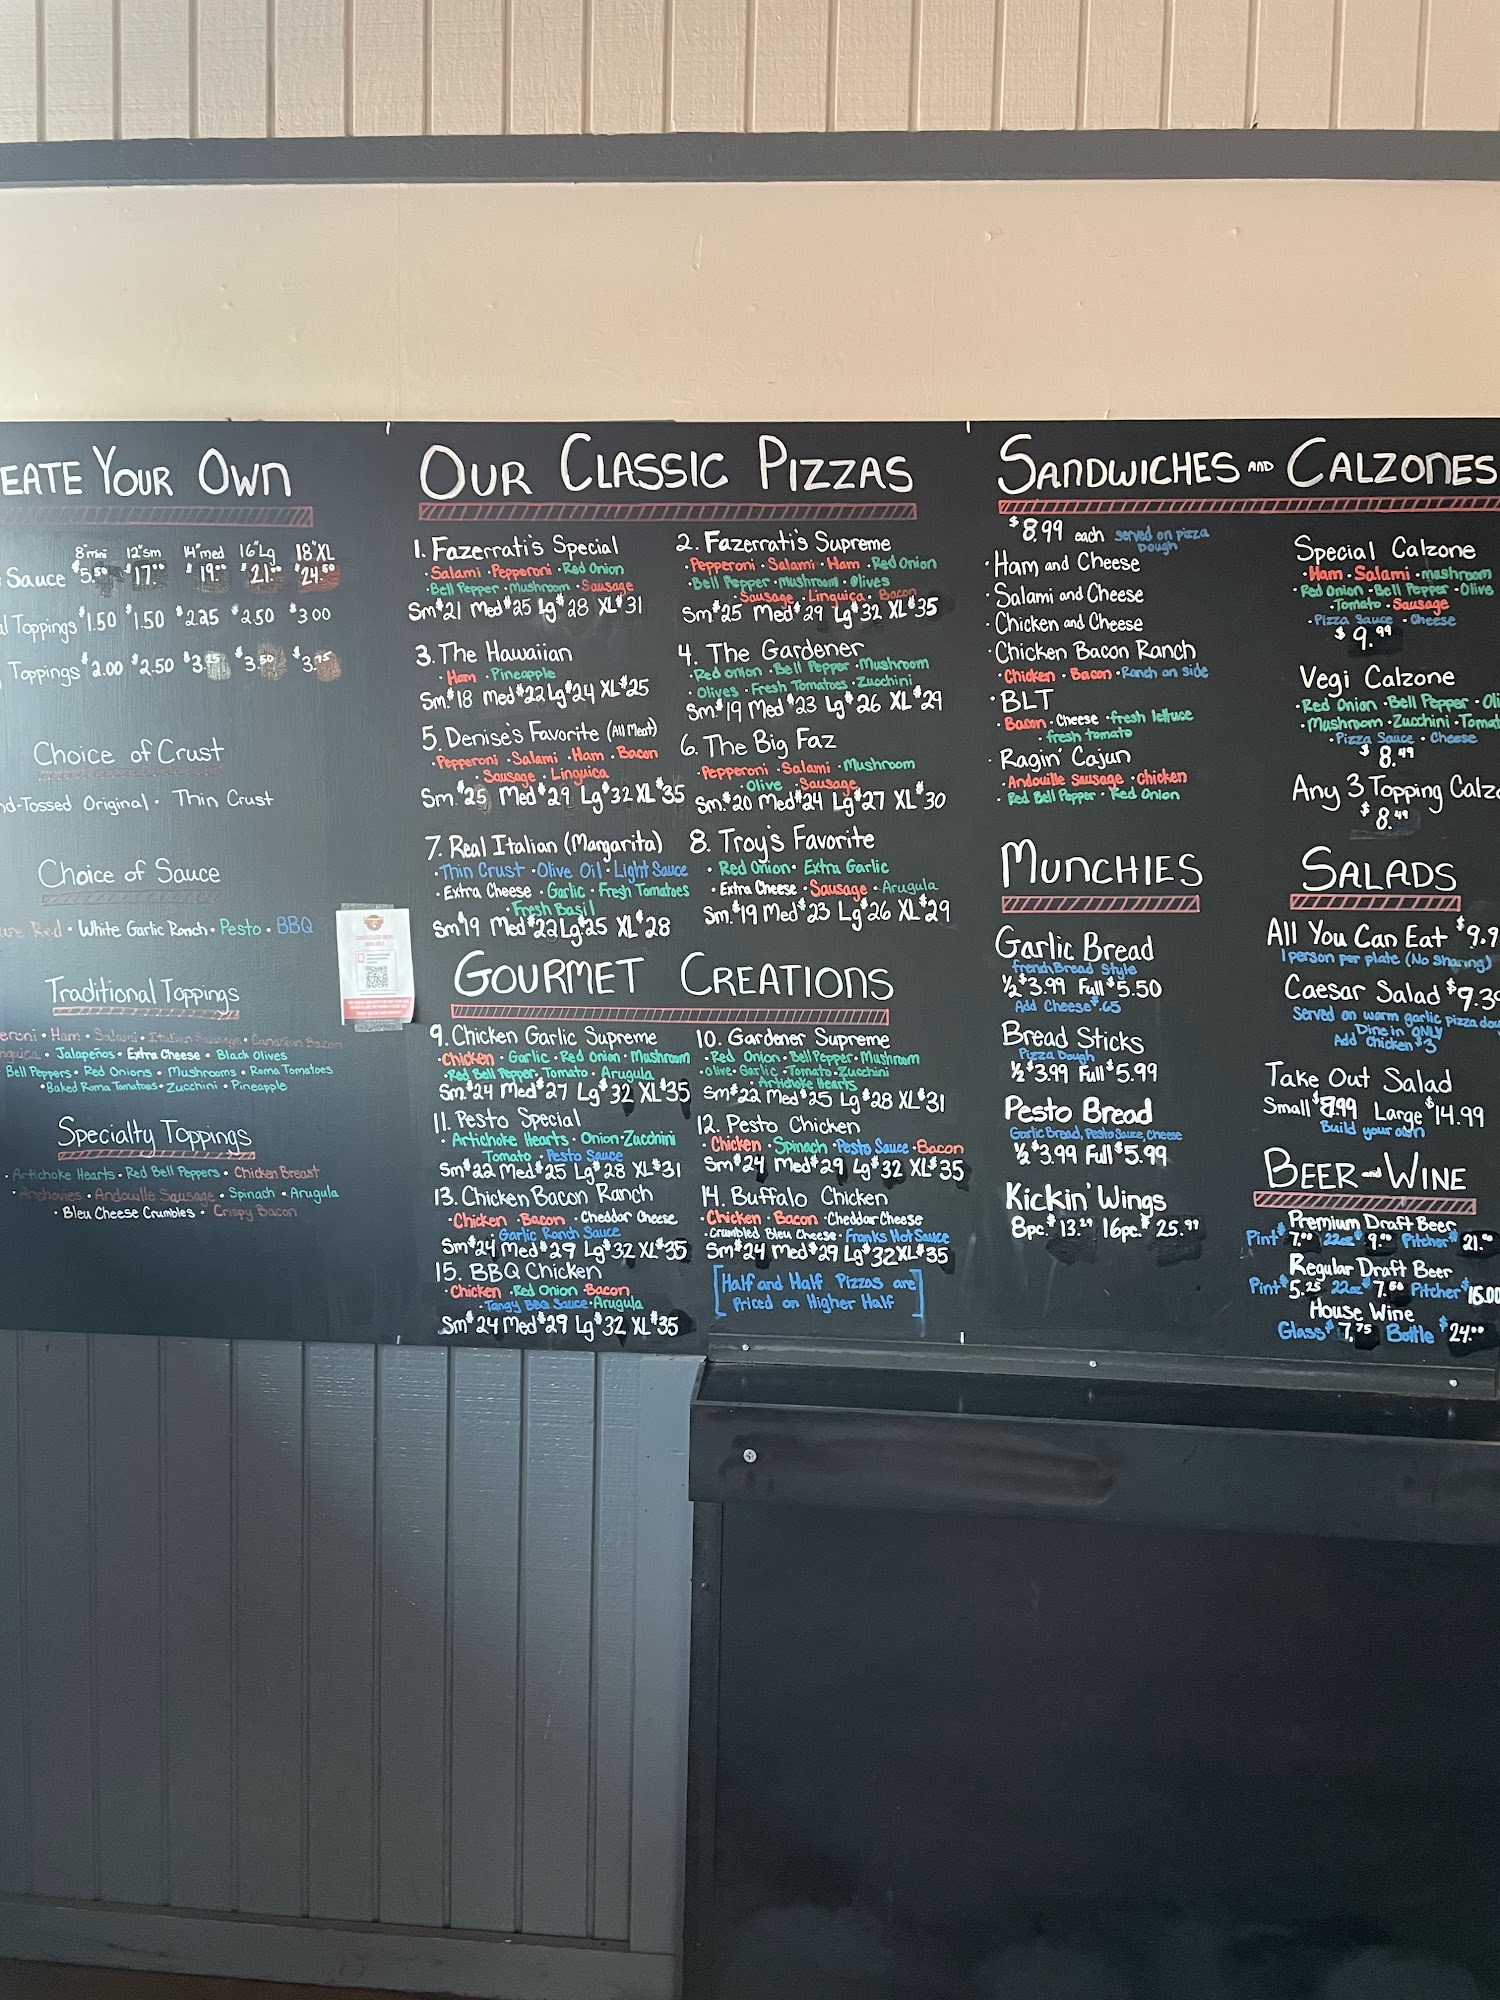 EATE YOUR OWN
8"mini 12"sm 14"med 16"Lg 18"XL
Sauce $5.50 $17.00 $19.00 $21.00 $24.50
l Toppings $1.50 $1.50 $2.25 $2.50 $3.00
Toppings $2.00 $2.50 $3.25 $3.50 $3.75
Choice of Crust
nd-Tossed Original · Thin Crust
Choice of Sauce
Red · White Garlic Ranch · Pesto · BBQ
Traditional Toppings
eroni · Ham · Salami · Italian Sausage · Canadian Bacon
nguica · Jalapeños · Extra Cheese · Black Olives
Bell Peppers · Red Onions · Mushrooms · Roma Tomatoes
· Baked Roma Tomatoes · Zucchini · Pineapple
Specialty Toppings
· Artichoke Hearts · Red Bell Peppers · Chicken Breast
· Anchovies · Andouille Sausage · Spinach · Arugula
· Bleu Cheese Crumbles · Crispy Bacon
OUR CLASSIC PIZZAS
1. Fazerrati's Special
· Salami · Pepperoni · Red Onion
· Bell Pepper · Mushroom · Sausage
Sm $21 Med $25 Lg $28 XL $31
2. Fazerrati's Supreme
· Pepperoni · Salami · Ham · Red Onion
· Bell Pepper · mushroom · Olives
· Sausage · Linguica · Bacon
Sm $25 Med $29 Lg $32 XL $35
3. The Hawaiian
· Ham · Pineapple
Sm. $18 Med $22 Lg $24 XL $25
4. The Gardener
· Red onion · Bell Pepper · Mushroom
· Olives · Fresh Tomatoes · Zucchini
Sm. $19 Med $23 Lg $26 XL $29
5. Denise's Favorite (All Meat)
· Pepperoni · Salami · Ham · Bacon
· Sausage · Linguica
Sm. $25 Med $29 Lg $32 XL $35
6. The Big Faz
· Pepperoni · Salami · Mushroom
· Olive · Sausage
Sm. $20 Med $24 Lg $27 XL $30
7. Real Italian (Margarita)
· Thin Crust · Olive Oil · Light Sauce
· Extra Cheese · Garlic · Fresh Tomatoes
· Fresh Basil
Sm $19 Med $22 Lg $25 XL $28
8. Troy's Favorite
· Red Onion · Extra Garlic
· Extra Cheese · Sausage · Arugula
Sm. $19 Med $23 Lg $26 XL $29
GOURMET CREATIONS
9. Chicken Garlic Supreme
· Chicken · Garlic · Red Onion · Mushroom
· Red Bell Pepper · Tomato · Arugula
Sm $24 Med $27 Lg $32 XL $35
10. Gardener Supreme
· Red Onion · Bell Pepper · Mushroom
· Olive · Garlic · Tomato · Zucchini
· Artichoke Hearts
Sm $22 Med $25 Lg $28 XL $31
11. Pesto Special
· Artichoke Hearts · Onion · Zucchini
Tomato · Pesto Sauce
Sm $22 Med $25 Lg $28 XL $31
12. Pesto Chicken
· Chicken · Spinach · Pesto Sauce · Bacon
Sm $24 Med $29 Lg $32 XL $35
13. Chicken Bacon Ranch
· Chicken · Bacon · Cheddar Cheese
· Garlic Ranch Sauce
Sm $24 Med $29 Lg $32 XL $35
14. Buffalo Chicken
· Chicken · Bacon · Cheddar Cheese
· Crumbled Bleu Cheese · Franks Hot Sauce
Sm $24 Med $29 Lg $32 XL $35
15. BBQ Chicken
· Chicken · Red Onion · Bacon
· Tangy BBQ Sauce · Arugula
Sm $24 Med $29 Lg $32 XL $35
[Half and Half Pizzas are
Priced on Higher Half]
SANDWICHES AND CALZONES
$8.99 each served on pizza
Dough
· Ham and Cheese
· Salami and Cheese
· Chicken and Cheese
· Chicken Bacon Ranch
· Chicken · Bacon · Ranch on side
· BLT
· Bacon · Cheese · fresh lettuce
· fresh tomato
· Ragin' Cajun
· Andouille Sausage · Chicken
· Red Bell Pepper · Red Onion
Special Calzone
· Ham · Salami · mushroom
· Red Onion · Bell Pepper · Olive
· Tomato · Sausage
· Pizza Sauce · Cheese
$9.99
Vegi Calzone
· Red Onion · Bell Pepper · Oli
· Mushroom · Zucchini · Tomat
· Pizza Sauce · Cheese
$8.49
Any 3 Topping Calzo
$8.49
MUNCHIES
Garlic Bread
french Bread Style
½ $3.99 Full $5.50
Add Cheese $.65
Bread Sticks
Pizza Dough
½ $3.99 Full $5.99
Pesto Bread
Garlic Bread, Pesto Sauce, Cheese
½ $3.99 Full $5.99
Kickin' Wings
8pc. $13.29 16pc. $25.99
SALADS
All You Can Eat $9.9
1 person per plate (No Sharing)
Caesar Salad $9.39
Served on warm garlic pizza dou
Dine in ONLY
Add Chicken $3
Take Out Salad
Small $8.99 Large $14.99
Build your own
BEER and WINE
Premium Draft Beer
Pint $7.00 22oz $9.00 Pitcher $21.00
Regular Draft Beer
Pint $5.25 22oz $7.50 Pitcher $15.00
House Wine
Glass $7.75 Bottle $24.00